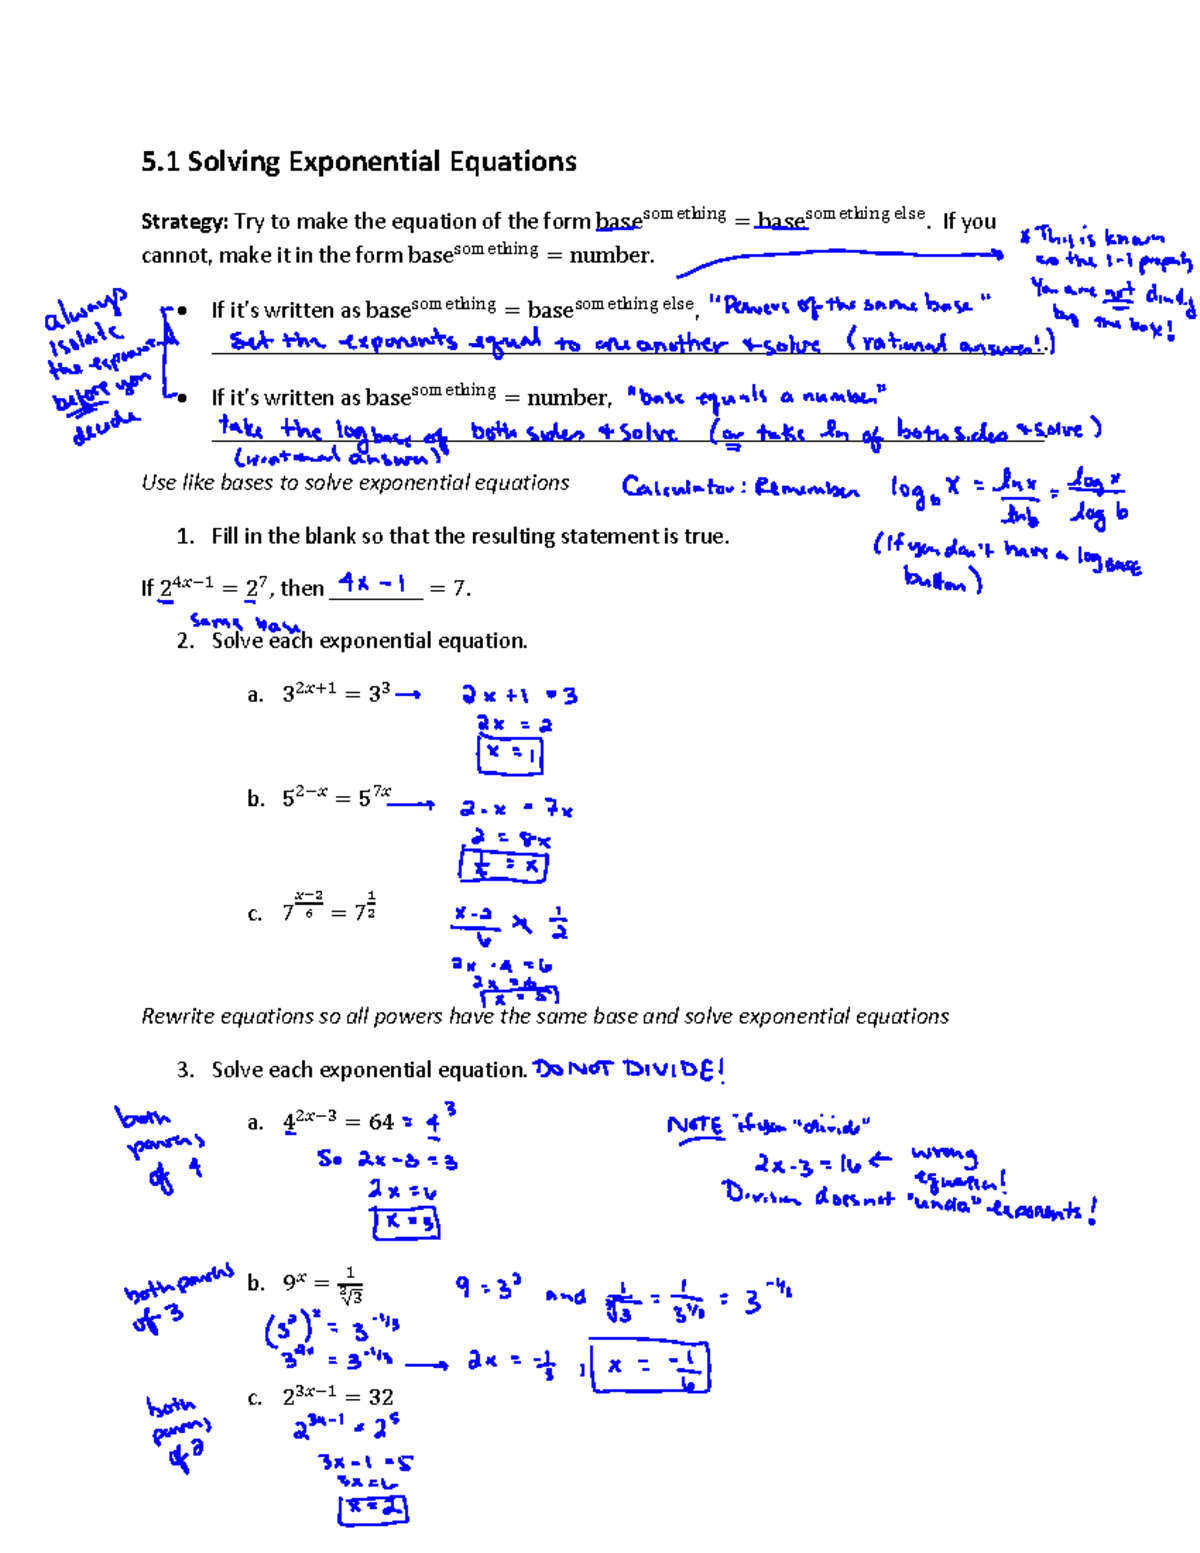 5.1 Solving Exponential Equations
Strategy: Try to make the equation of the form base^something = base^something else. If you
cannot, make it in the form base^something = number.
* This is known
as the 1-1 property
You are not dividing
by the base!
always
isolate
the exponential
before you
decide
• If it's written as base^something = base^something else, "Powers of the same base"
Set the exponents equal to one another + solve (rational answer!)
• If it's written as base^something = number, "base equals a number"
take the log base of both sides + solve (or take ln of both sides + solve)
(irrational answer)
Use like bases to solve exponential equations
Calculator: Remember log_b x = ln x / ln b = log x / log b
(If you don't have a log BASE
button)
1. Fill in the blank so that the resulting statement is true.
If 2^(4x−1) = 2^7, then 4x − 1 = 7.
same base
2. Solve each exponential equation.
a. 3^(2x+1) = 3^3 → 2x + 1 = 3
2x = 2
x = 1
b. 5^(2−x) = 5^(7x) → 2 - x = 7x
2 = 8x
1/4 = x
c. 7^((x−2)/6) = 7^(1/2) (x-2)/6 = 1/2
2x - 4 = 6
2x = 10
x = 5
Rewrite equations so all powers have the same base and solve exponential equations
3. Solve each exponential equation. DO NOT DIVIDE!
both
powers
of 4
a. 4^(2x−3) = 64 = 4^3
So 2x - 3 = 3
2x = 6
x = 3
NOTE if you "divide"
2x - 3 = 16 ← wrong
equation!
Division does not "undo" exponents!
both powers
of 3
b. 9^x = 1/∛3 9 = 3^2 and 1/∛3 = 1/3^(1/3) = 3^(-1/3)
(3^2)^x = 3^(-1/3)
3^(2x) = 3^(-1/3) → 2x = -1/3, x = -1/6
both
powers
of 2
c. 2^(3x−1) = 32
2^(3x-1) = 2^5
3x - 1 = 5
3x = 6
x = 2